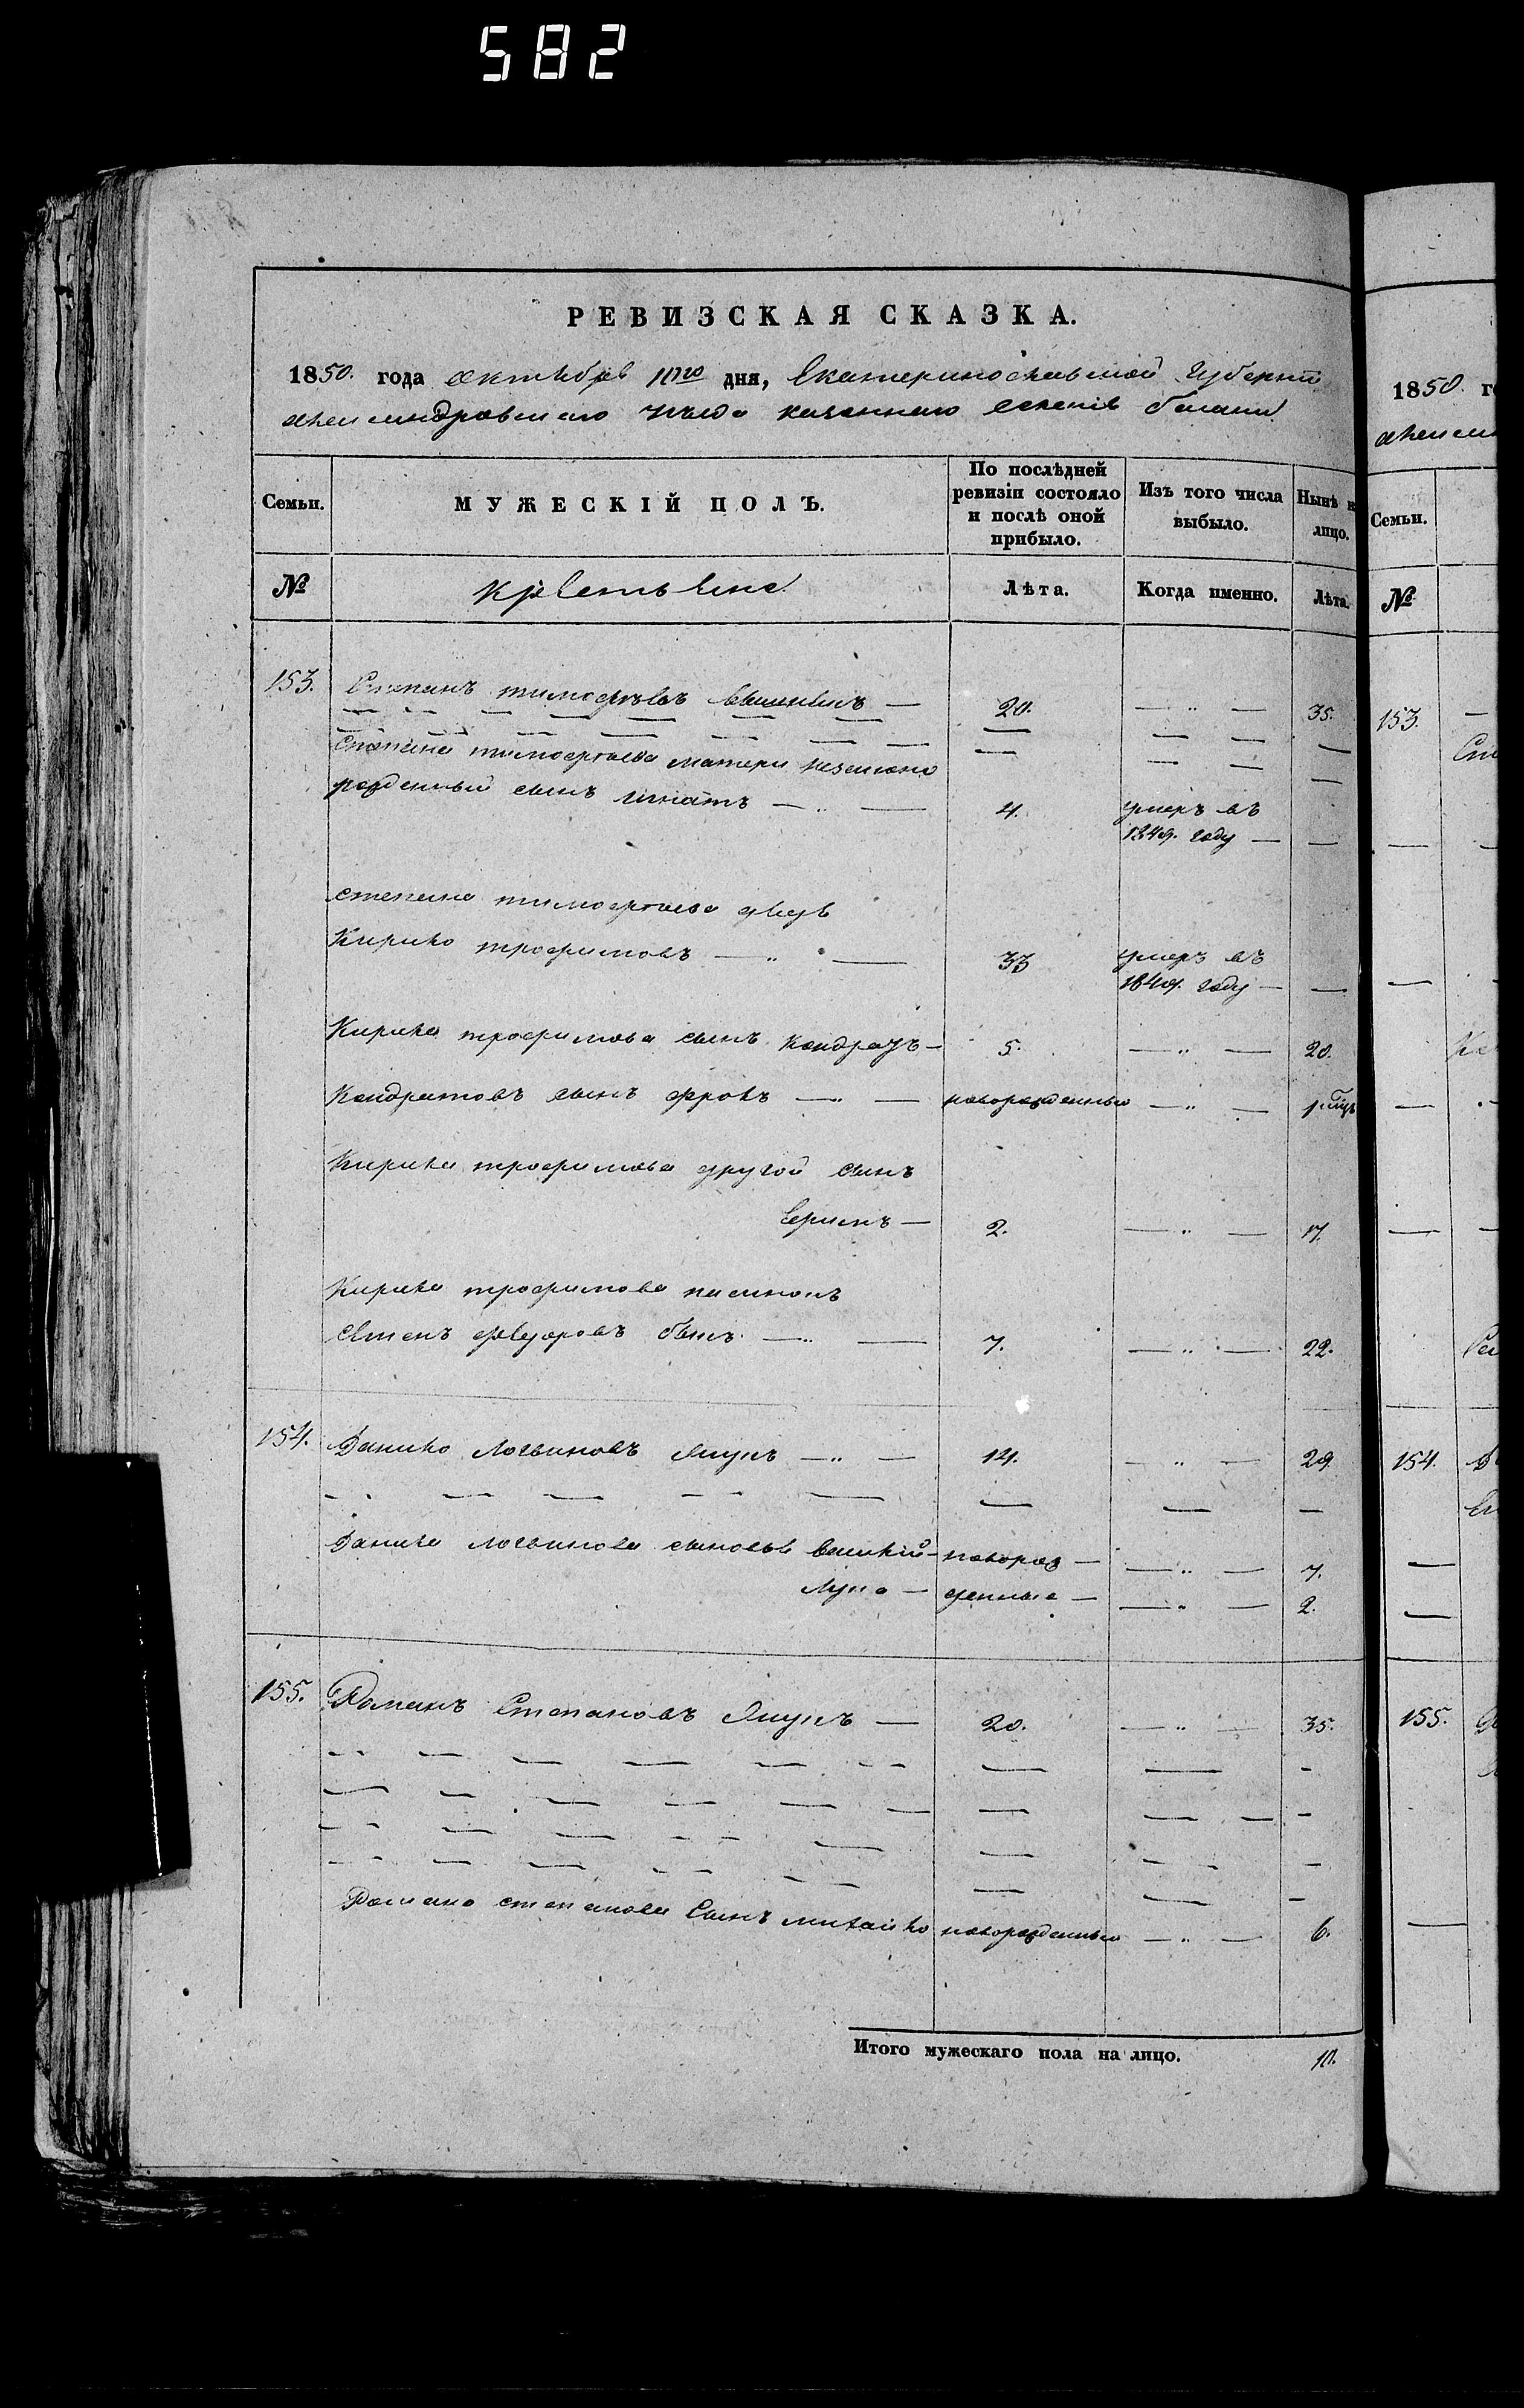 582
РЕВИЗСКАЯ СКАЗКА.
1850. года октября 11го дня, Екатеринославской Губерніи
Александровскаго уезда казеннаго селенія
Семьи. МУЖЕСКІЙ ПОЛЪ. По послѣдней ревизіи состояло и послѣ оной прибыло. Изъ того числа выбыло. Нынѣ н лицо.
№ Крестьяне Лѣта. Когда именно. Лѣта.
153. Степанъ тимофѣевъ — 20. — „ — 35.
Степана тимофѣева матери незаконо
рожденный сынъ игнатъ — „ — 4. умеръ въ
1849. году — —
степана тимофѣева дядя
Кирило трофимовъ — „ — 33 умеръ въ
1849. году — —
Кирила трофимова сынъ Кондратъ — 5. — „ — 20.
Кондратовъ сынъ фролъ — „ — новорожденный — „ — 1.
Кирила трофимова другой сынъ
— 2. — „ — 17.
Кирила трофимова пасынокъ
федоровъ — „ — 7. — „ — 22.
154. Данило Логвиновъ Ящукъ — „ — 14. — „ — 29
Данила логвинова сыновья василій — новорож — — „ — 7.
Лука — денные — — „ — 2.
155. Романъ Степановъ Ящукъ — 20. — „ — 35.
Романа степанова Сынъ михайло новорожденный — „ — 6.
Итого мужескаго пола на лицо. 10.
1850. го
Семьи.
№
153.
154.
155.